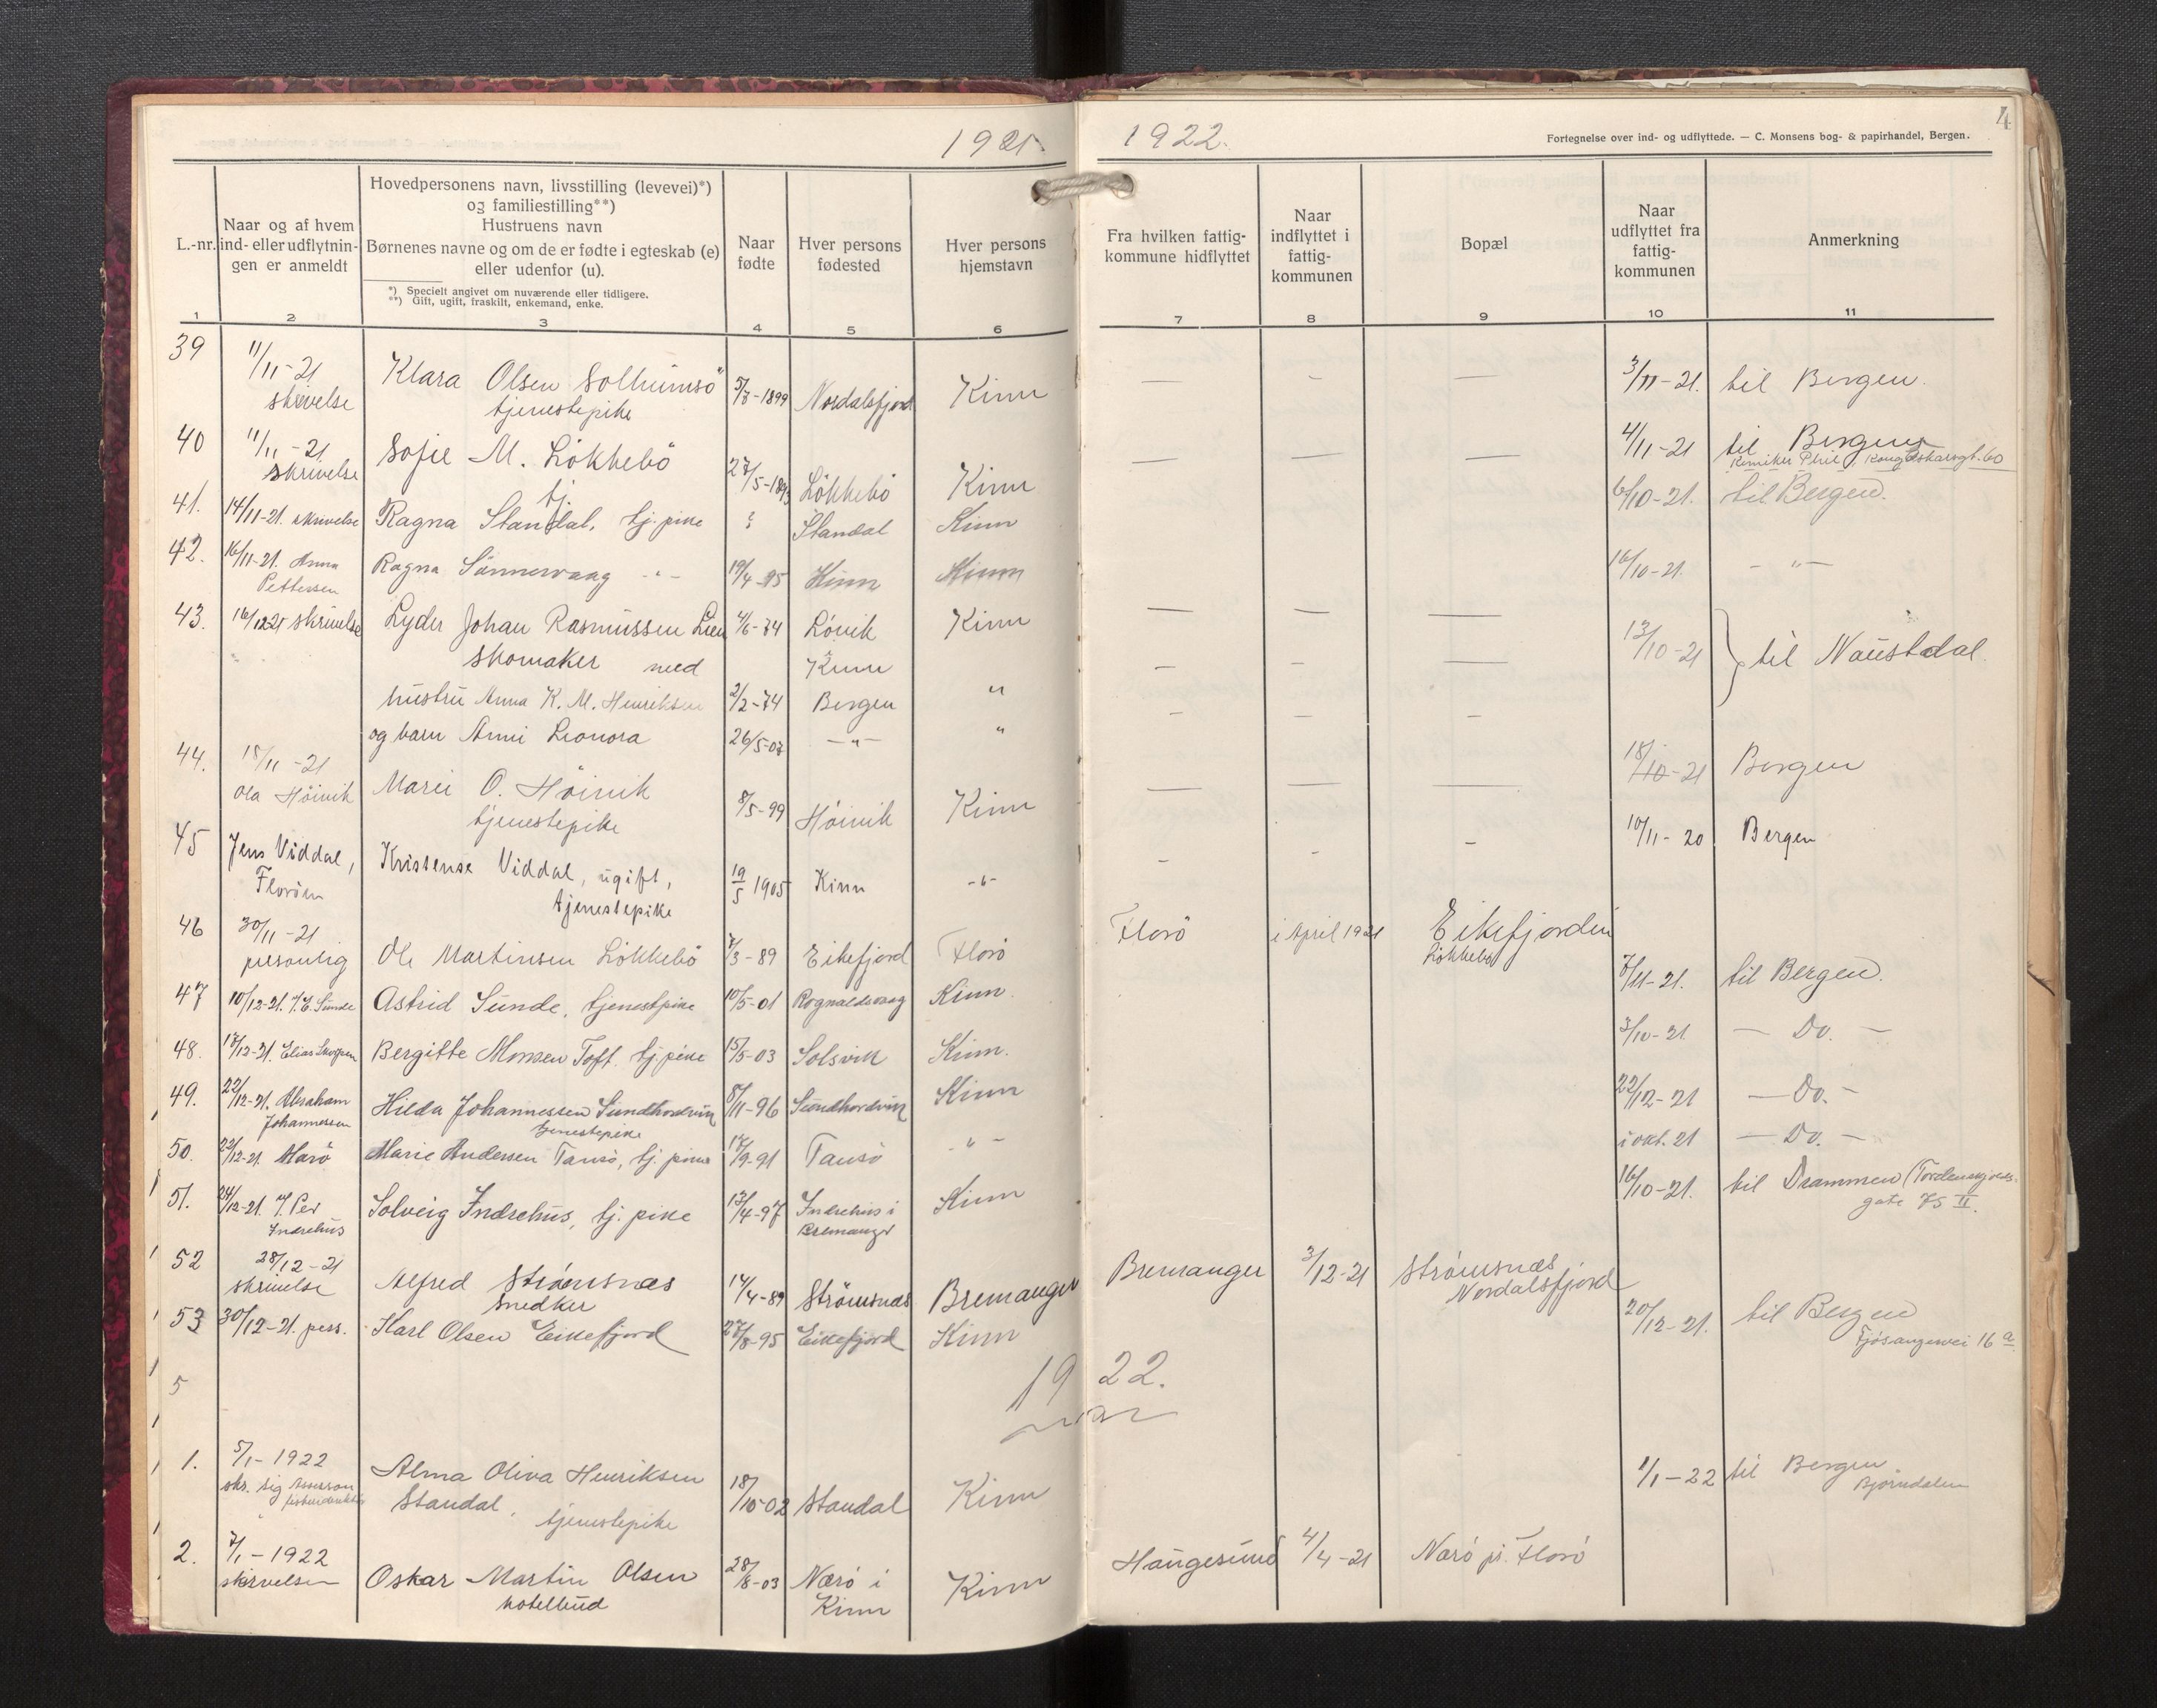 1921.
1922.
4
Fortegnelse over ind- og udflyttede. — C. Monsens bog- & papirhandel, Bergen.
L.-nr.
Naar og af hvem
ind- eller udflytnin-
gen er anmeldt
Hovedpersonens navn, livsstilling (levevei)*)
og familiestilling**)
Hustruens navn
Børnenes navne og om de er fødte i egteskab (e)
eller udenfor (u).
*) Specielt angivet om nuværende eller tidligere.
**) Gift, ugift, fraskilt, enkemand, enke.
Naar
fødte
Hver persons
fødested
Hver persons
hjemstavn
Fra hvilken fattig-
kommune hidflyttet
Naar
indflyttet i
fattig-
kommunen
Bopæl
Naar
udflyttet fra
fattig-
kommunen
Anmerkning
1 2 3 4 5 6 7 8 9 10 11
39 11/11-21 Klara Olsen Solheimsö 5/7-1899 Nordalsfjord Kinn — — — 3/11-21. til Bergen.
skrivelse tjenestepike
40 11/11-21 Sofie M. Lökkebö 27/5-1893 Lökkebö Kinn — — — 4/11-21 til Bergen
skrivelse tj. Kemiker Phil, Kong Oskarsgt. 60
41. 14/11-21. skrivelse Ragna Standal, tj. pike ? Standal Kinn 6/10-21. til Bergen.
42. 16/11-21. Anna Ragna Sönnervaag -"- 19/4-95 Kinn Kinn 16/10-21. - " -
Pettersen
43. 16/12 21 skrivelse Lyder Johan Rasmussen Lien 4/6-74 Lövik Kinn — — — 13/10-21 til Naustdal.
skomaker med Kinn — — —
hustru Anna K. M. Henriksen 2/2-74 Bergen " — — —
og barn Anni Leonora 26/5-07 —"— "
44. 18/11-21 Marie O. Höivik 8/5-99 Höivik Kinn — — — 18/10-21 Bergen
Ola Höivik tjenestepike
45 Jens Viddal, Kristense Viddal, ugift, 19/5 1905 Kinn -"- - - - 10/11-20 Bergen
Florøen tjenestepike
46 30/11-21 Ole Martinsen Lökkebö 7/3-89 Eikefjord Florö Florö i April 1921 Eikefjorden
personlig Lökkebö
47 10/12-21. J. E. Sunde Astrid Sunde, tjenestpike 10/5-01 Rognaldsvaag Kinn. 7/11-21. til Bergen.
48. 17/12-21. Elias Skorpen Bergitte Monsen Toft. tj. pike 15/5-03 Solsvik Kinn. 3/10-21 — Do. —
49. 22/12-21. Abraham Hilda Johannessen Sundhordvik 8/11-96 Sundhordvik Kinn 22/12-21 — Do. -
Johannessen tjenestepike
50. 22/12-21. Marö Marie Andersen Tansö, tj. pike 17/9-91 Tansö - " - i okt. 21 — Do. —
51. 24/12-21. J. Per Solveig Indrehus, tj. pike 13/4-97 Indrehus i Kinn 16/10-21. til Drammen (Tordenskjolds-
Indrehus Bremanger gate 75 II.
52 28/12-21 Alfred Strömsnæs 14/4-89 Strömsnæs Bremanger Bremanger 3/12-21 Strömsnæs
skrivelse snedker Nordalsfjord
53 30/12-21. pers. Karl Olsen Eikefjord 27/8-95 Eikefjord Kinn 20/12-21. til Bergen
Fjösangervei 16 a
5
1922.
1. 5/1-1922 Alma Oliva Henriksen 18/10-02 Standal Kinn 1/1-22 til Bergen
Standal, tjenestepike Björndalen
2. 7/1-1922 Oskar Martin Olsen 28/8-03 Nærö i Kinn Haugesund 4/4-21 Nærö pr. Florö
skrivelsen hotelbud Kinn